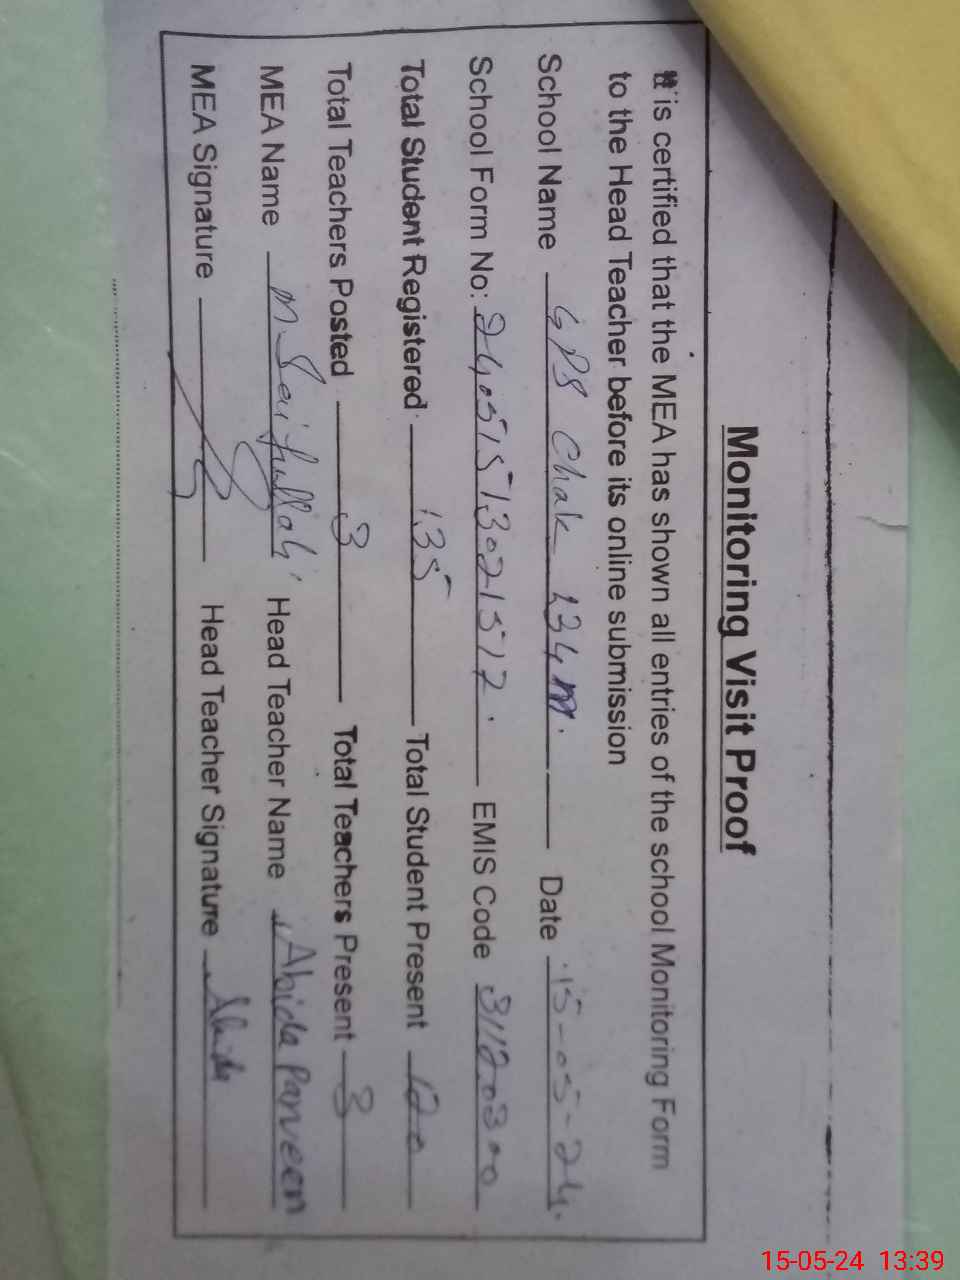 Monitoring Visit Proof
It is certified that the MEA has shown all entries of the school Monitoring Form
to the Head Teacher before its online submission
School Name GPS Chak 134m. Date 15-05-24.
School Form No: 24051513021512. EMIS Code 31120300
Total Student Registered: 135 Total Student Present 120
Total Teachers Posted 3 Total Teachers Present 3
MEA Name M Saifullah Head Teacher Name Abida Parveen
MEA Signature Head Teacher Signature Abida
15-05-24 13:39